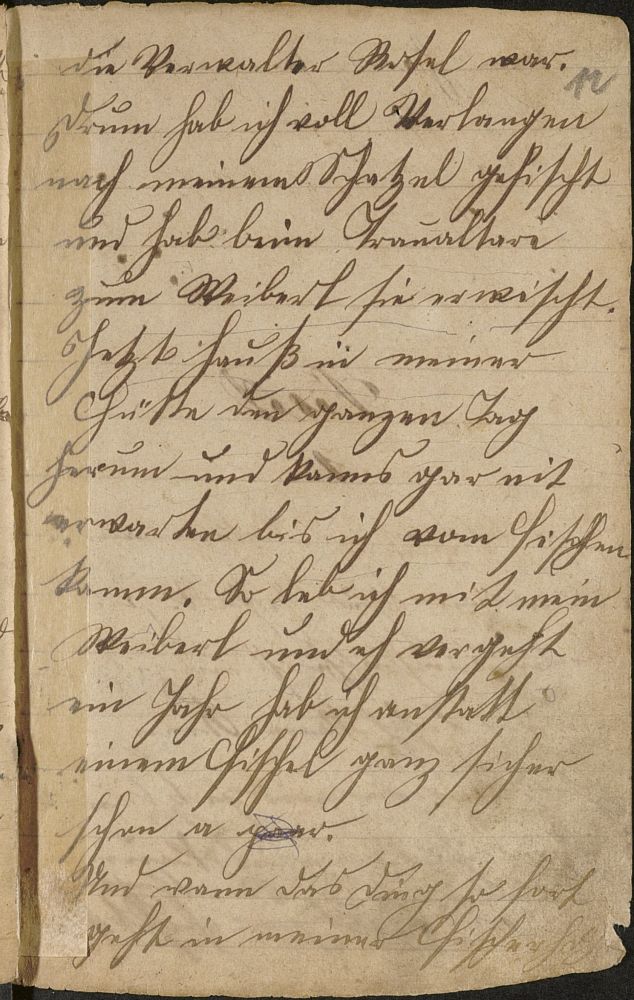 die Verwalter Rosel war.
12
Drum hab ich voll Verlangen
nach meinem Schatzel gefischt
und hab beim Traualtare
zum Weiberl sie erwischt.
Jetzt haußt in meiner
Hütte den ganzen Tag
herum und kanns gar nit
erwarten bis ich vom Fischen
kumm. So leb ich mit mein
Weiberl und eh vergeht
ein Jahr hab ich anstatt
einem Fischel ganz sicher
schon a paar.
Und wann das Ding so fort
geht in meiner